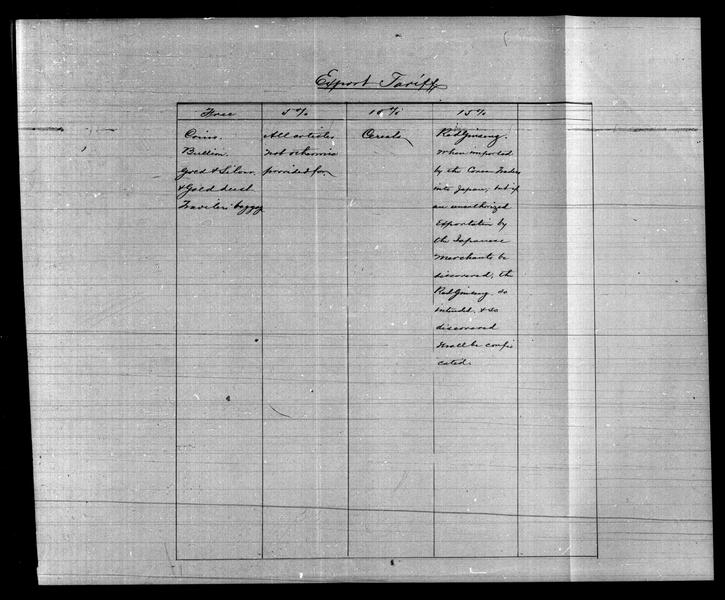 Export Tariff
Free
5 %
10 %
15 %
Coins.
Bullion
Gold & Silver
& Gold dust
Travelers baggage
All articles
not otherwise
provided for
Cereals
Red Ginseng.
When imported
by the Corean Traders
into Japan; but if
an unauthorized
Exportation by
the Japanese
Merchants be
discovered, the
Red Ginseng so
intended, & so
discovered
shall be confis
cated.